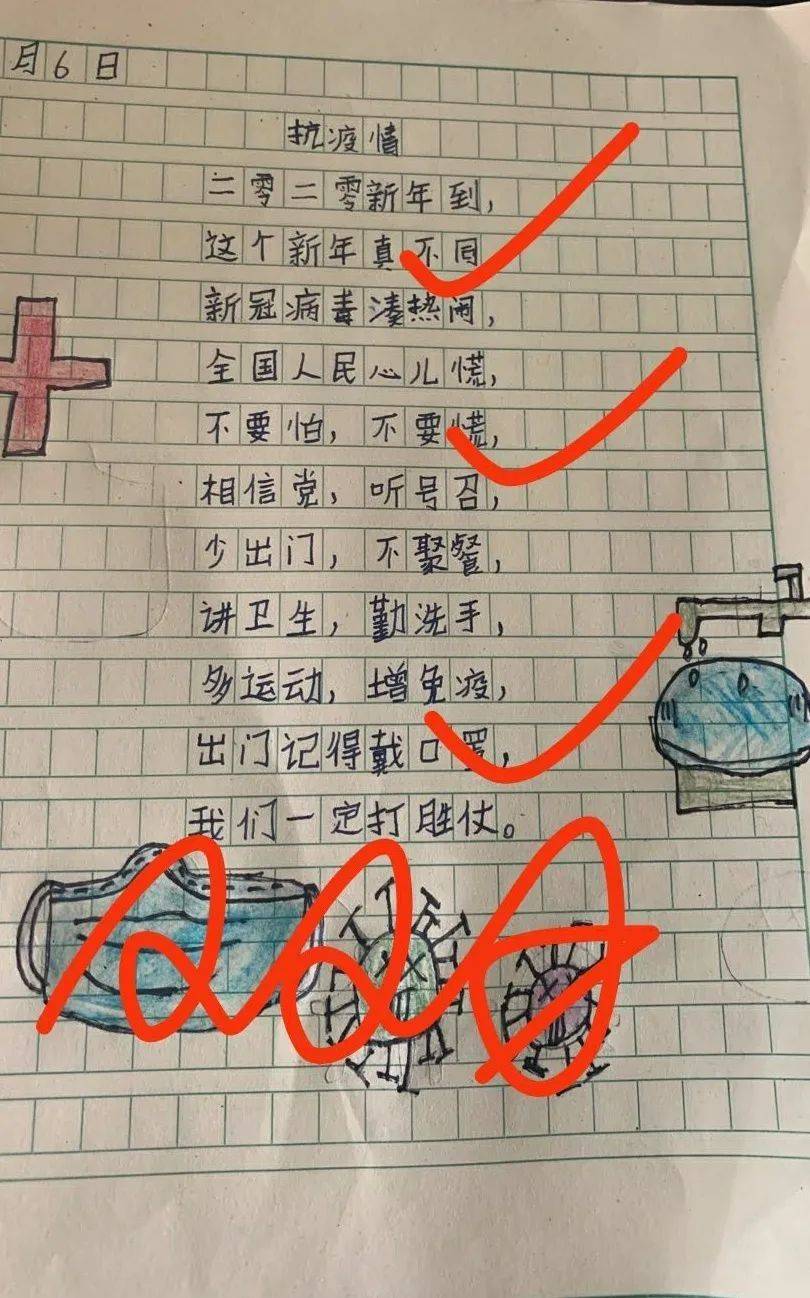 月6日
抗疫情
二零二零新年到,
这个新年真不同
新冠病毒凑热闹,
全国人民心儿慌,
不要怕,不要慌,
相信党,听号召,
少出门,不聚餐,
讲卫生,勤洗手,
多运动,增免疫,
出门记得戴口罩,
我们一定打胜仗。